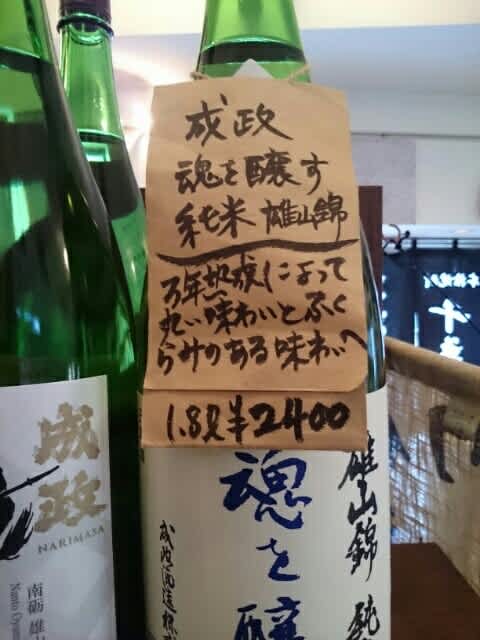 成政
魂を醸す
純米 雄山錦
万年熟成によって
丸い味わいとふく
らみのある味わいへ
1.8ℓ ¥2400
成政
NARIMASA
南砺 雄山
Nanto Oyama
雄山錦 純
魂を醸
成政酒造株式